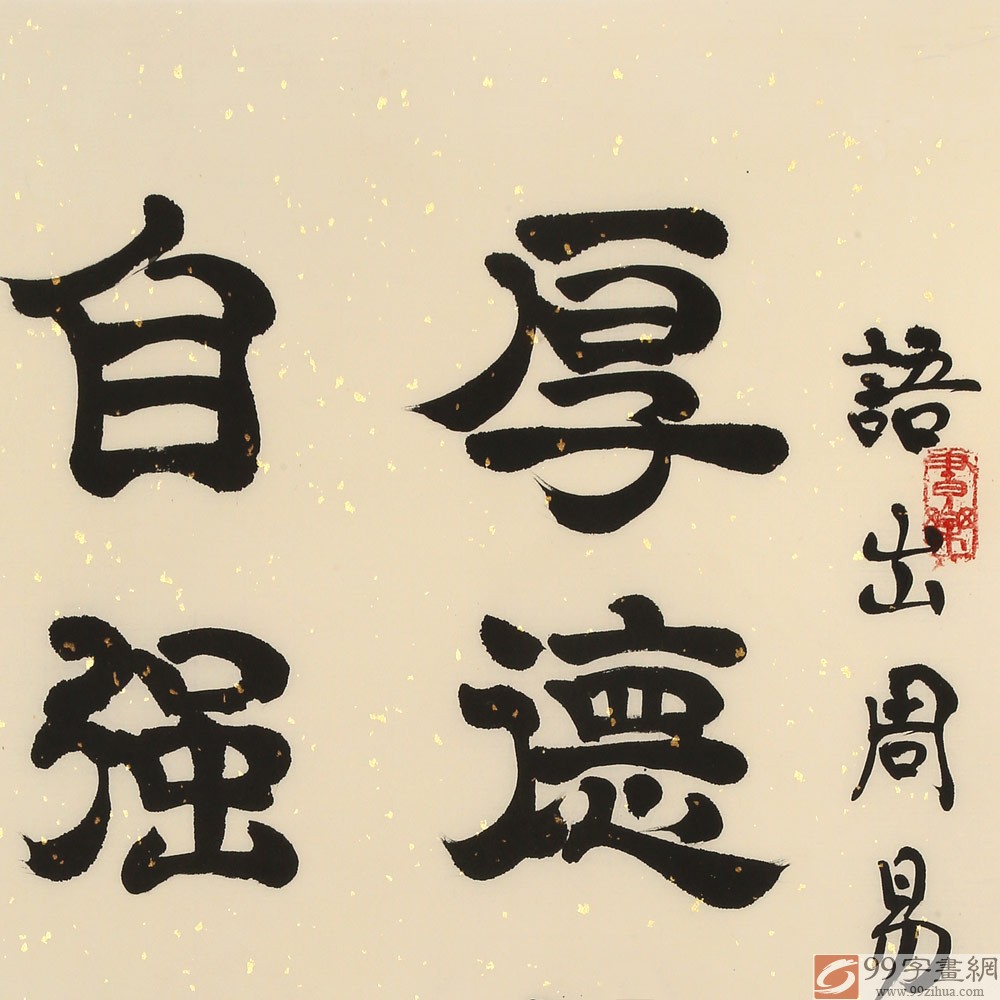 語出周易
厚德
自强
99字畫網
www.99zihua.com